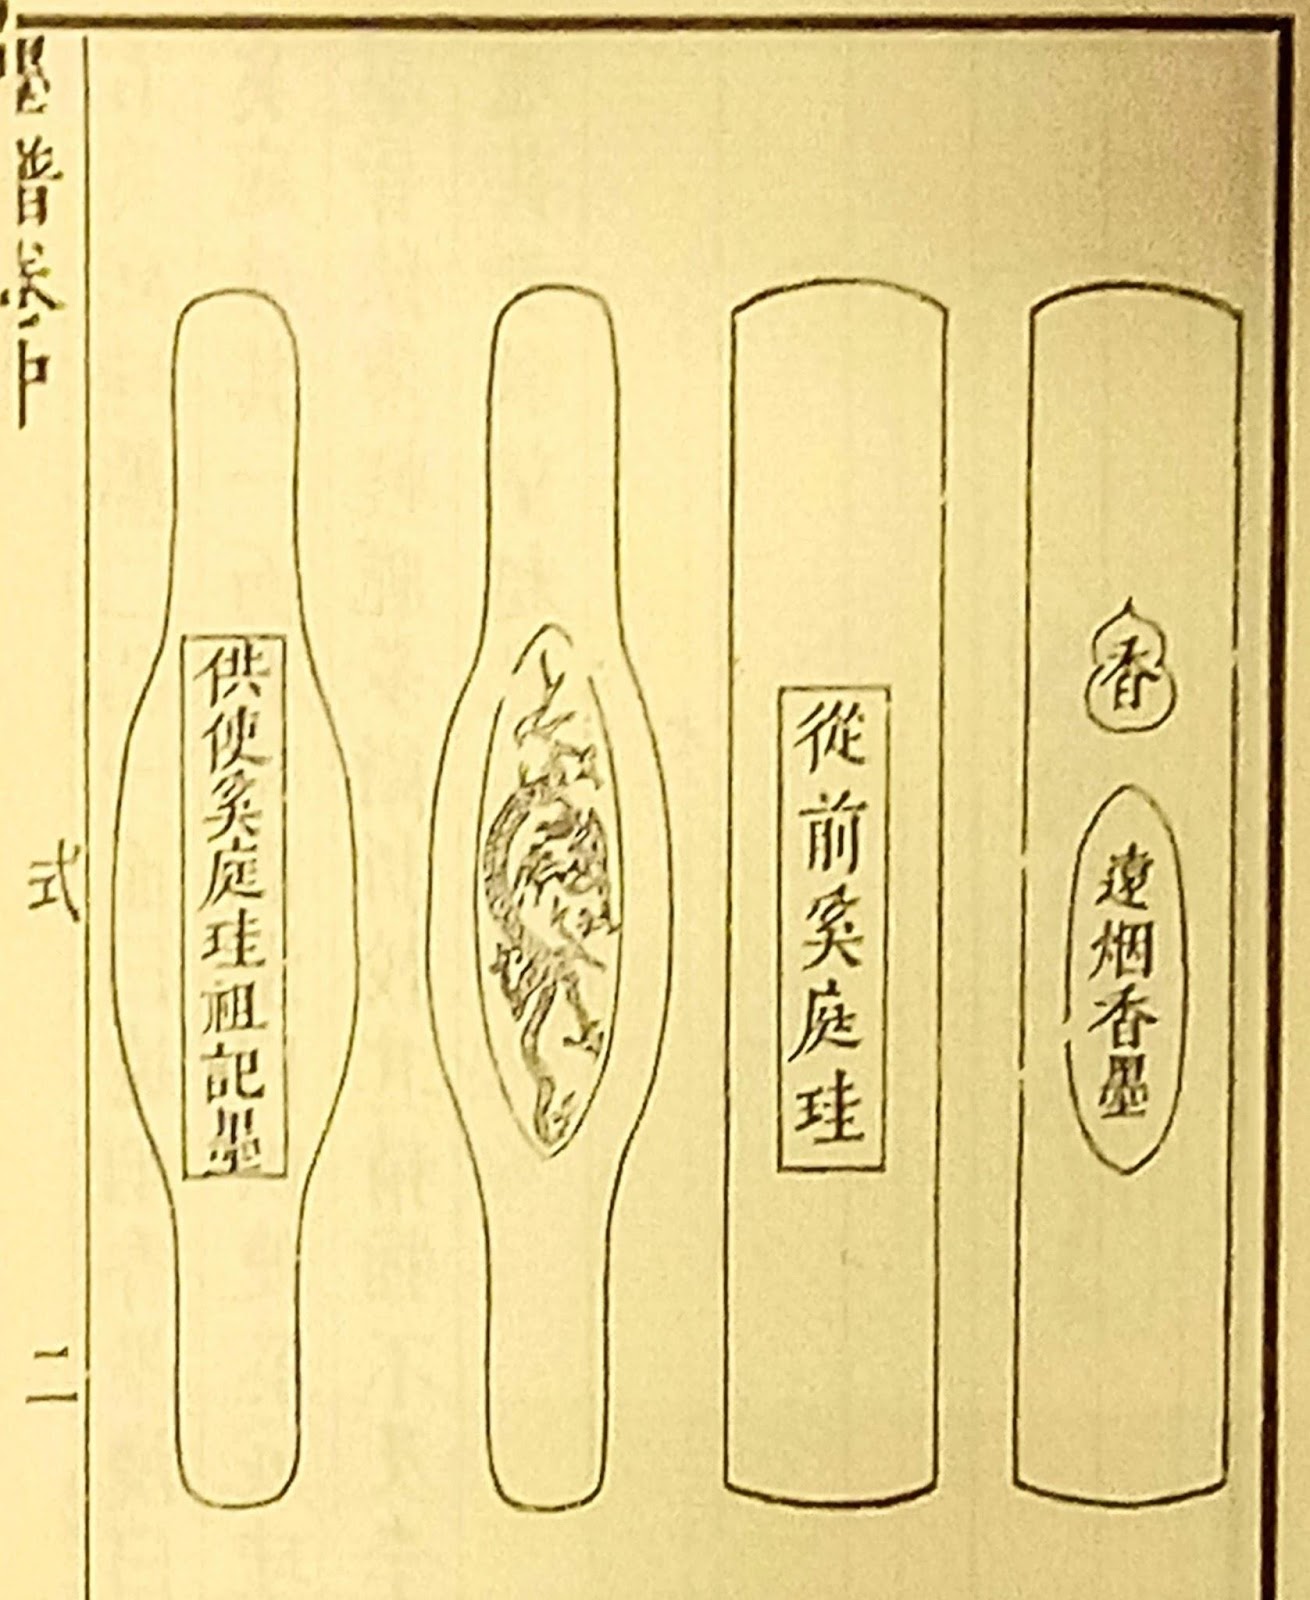 香
遠烟香墨
從前奚庭珪
供使奚庭珪祖記墨
式
二